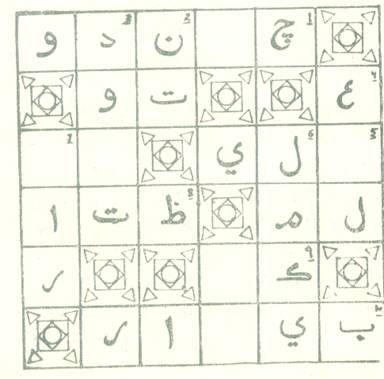 ١ چ ٢ ن ٣ د و
٤ ع ت و
٥ ٦ ل ي ٧
ل م ٨ ظ ت ا
٩ ک ر
ب ي ا ر